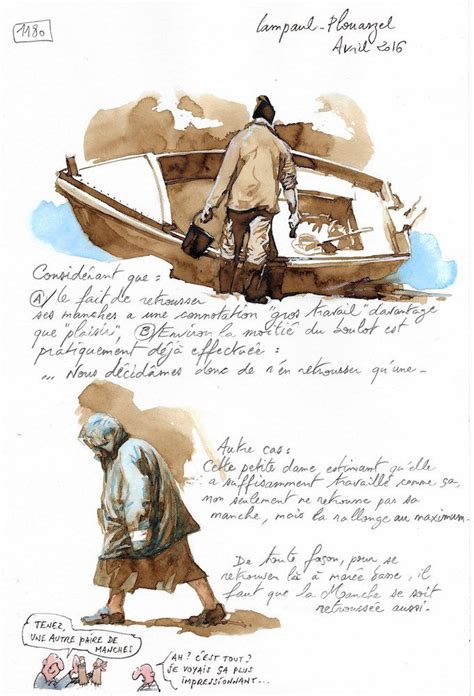 1180
Lampaul-Plouarzel
Avril 2016
Considérant que :
Ⓐ/ Le fait de retrousser
ses manches a une connotation "gros travail" davantage
que "plaisir", Ⓑ/ Environ la moitié du boulot est
pratiquement déjà effectuée :
... Nous décidâmes donc de n'en retrousser qu'une-
Autre cas :
Cette petite dame, estimant qu'elle
a suffisamment travaillé comme ça,
non seulement ne retrousse pas sa
manche, mais la rallonge au maximum-
De toute façon, pour se
retrouver là à marée basse, il
faut que la Manche se soit
retroussée aussi.
TENEZ,
UNE AUTRE PAIRE DE
MANCHES
AH ? C'EST TOUT ?
JE VOYAIS ÇA PLUS
IMPRESSIONNANT...